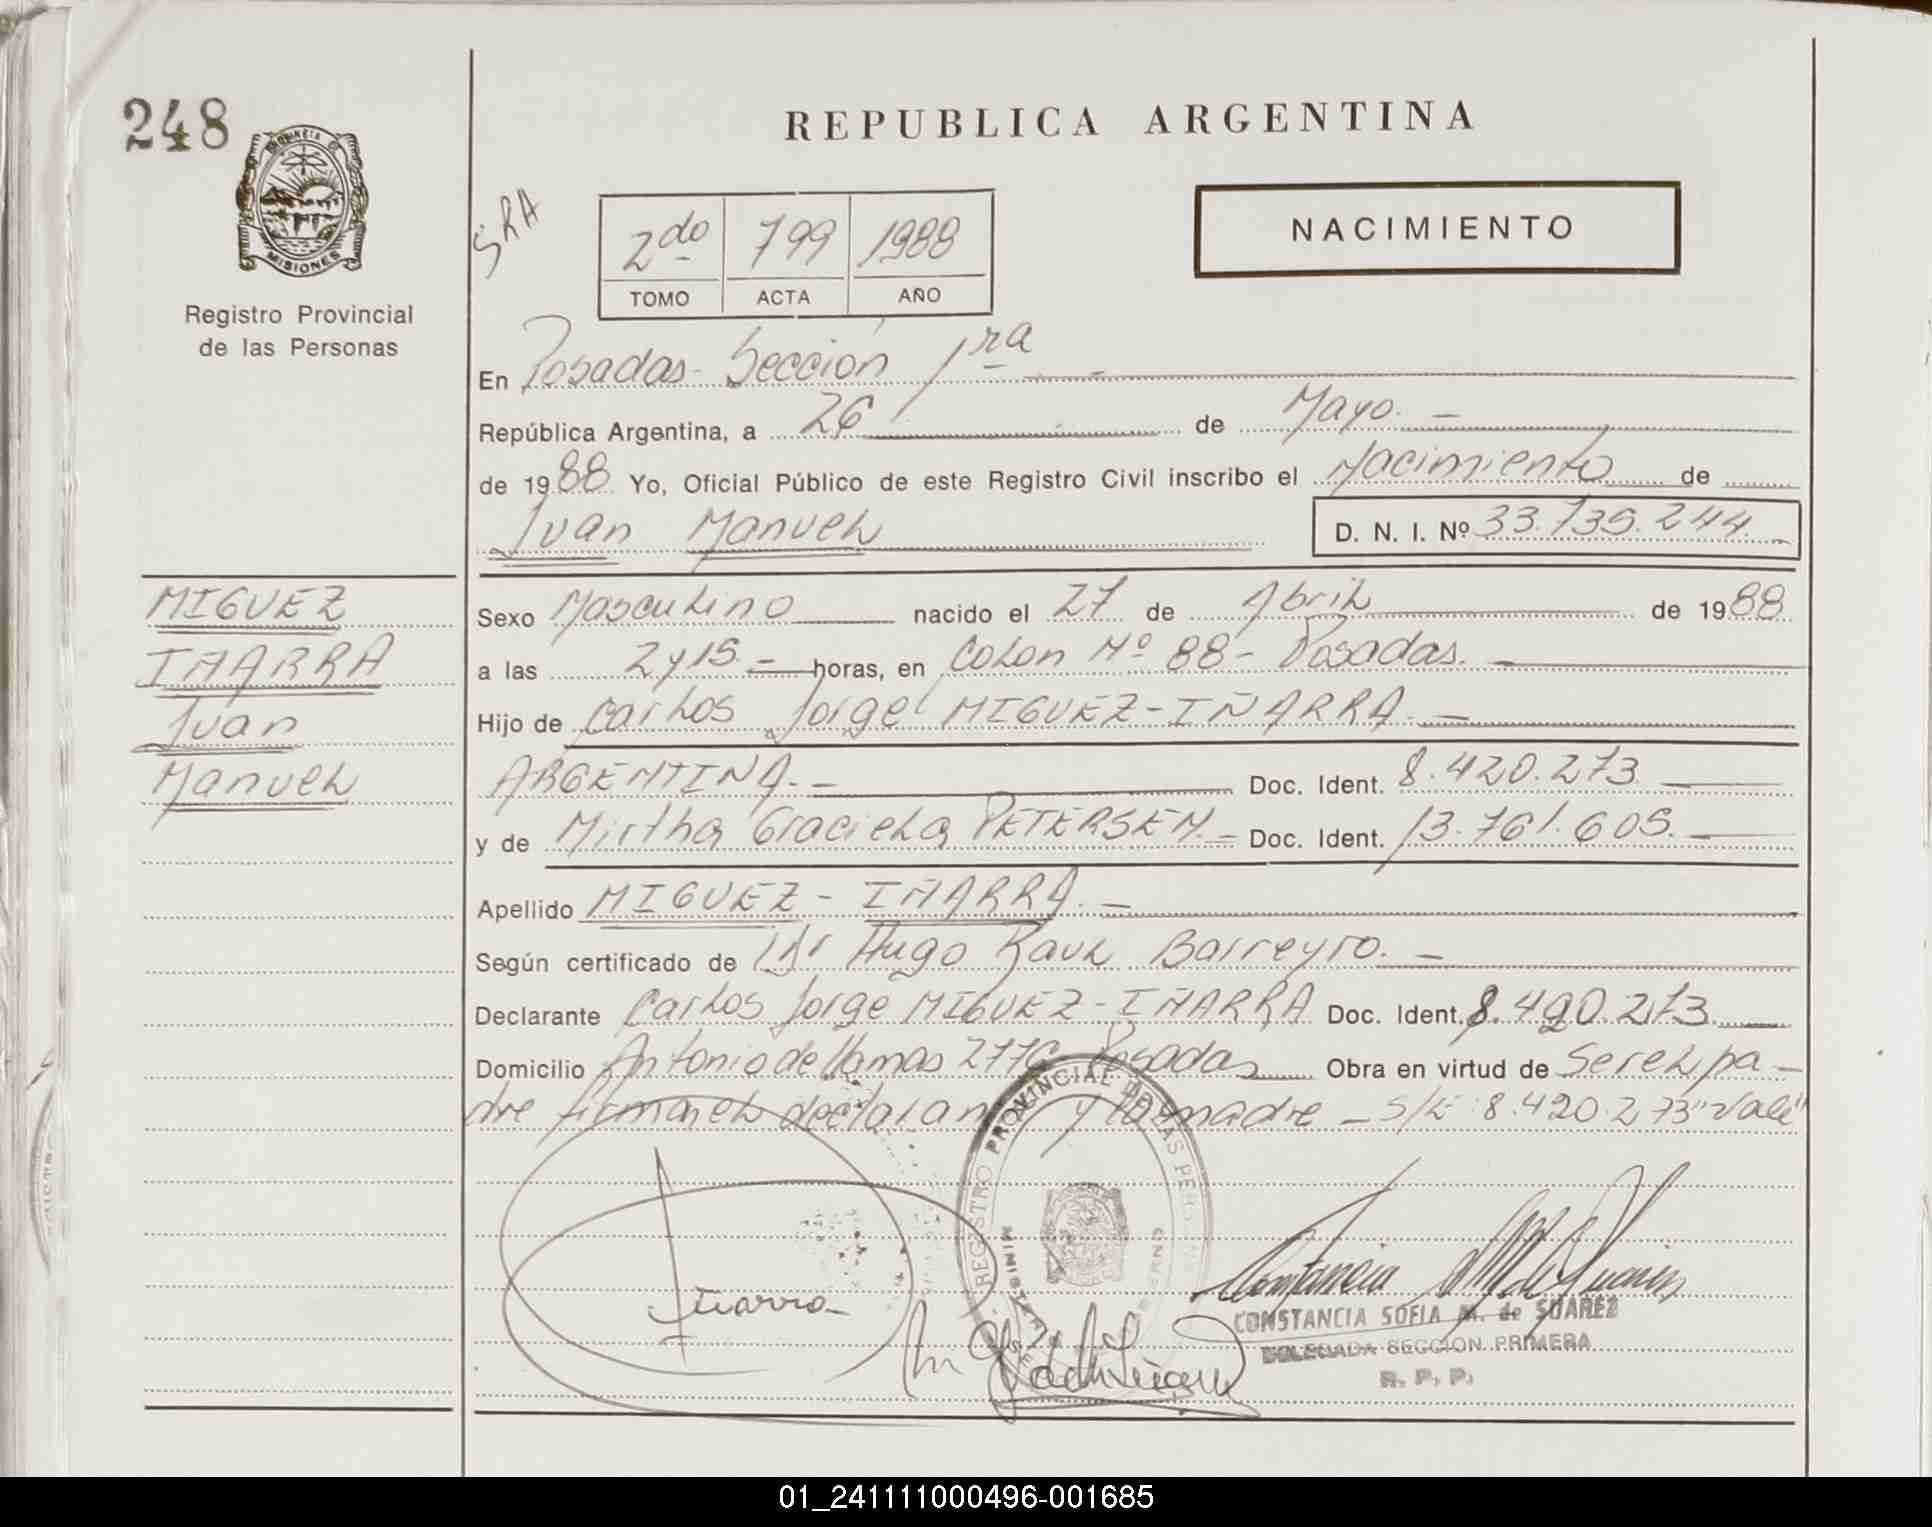 248
PROVINCIA DE
MISIONES
Registro Provincial
de las Personas
REPUBLICA ARGENTINA
SRA
2do 799 1988
TOMO ACTA AÑO
NACIMIENTO
En Posadas - Sección 1ra -
República Argentina, a 26 de Mayo. -
de 1988 Yo, Oficial Público de este Registro Civil inscribo el Nacimiento de
Juan Manuel D. N. I. Nº 33.735.244.
MIGUEZ
IÑARRA
Juan
Manuel
Sexo Masculino nacido el 27 de Abril de 1988
a las 2 y 15 - horas, en Colon Nº 88 - Posadas. -
Hijo de Carlos Jorge MIGUEZ-IÑARRA -
ARGENTINA. - Doc. Ident. 8.420.273
y de Mirtha Graciela PETERSEN. - Doc. Ident. 13.761.605.
Apellido MIGUEZ - IÑARRA. -
Según certificado de Dr Hugo Raul Barreyro. -
Declarante Carlos Jorge MIGUEZ-IÑARRA Doc. Ident. 8.490.273
Domicilio Antonio de llamas 2776 Posadas Obra en virtud de Ser el pa-
dre firman el declarante y la madre - S/E: 8.420.273 "Vale"
REGISTRO PROVINCIAL DE LAS PERSONAS
Iñarra
CONSTANCIA SOFIA M. de SUAREZ
DELEGADA SECCION PRIMERA
R. P. P.
01_241111000496-001685